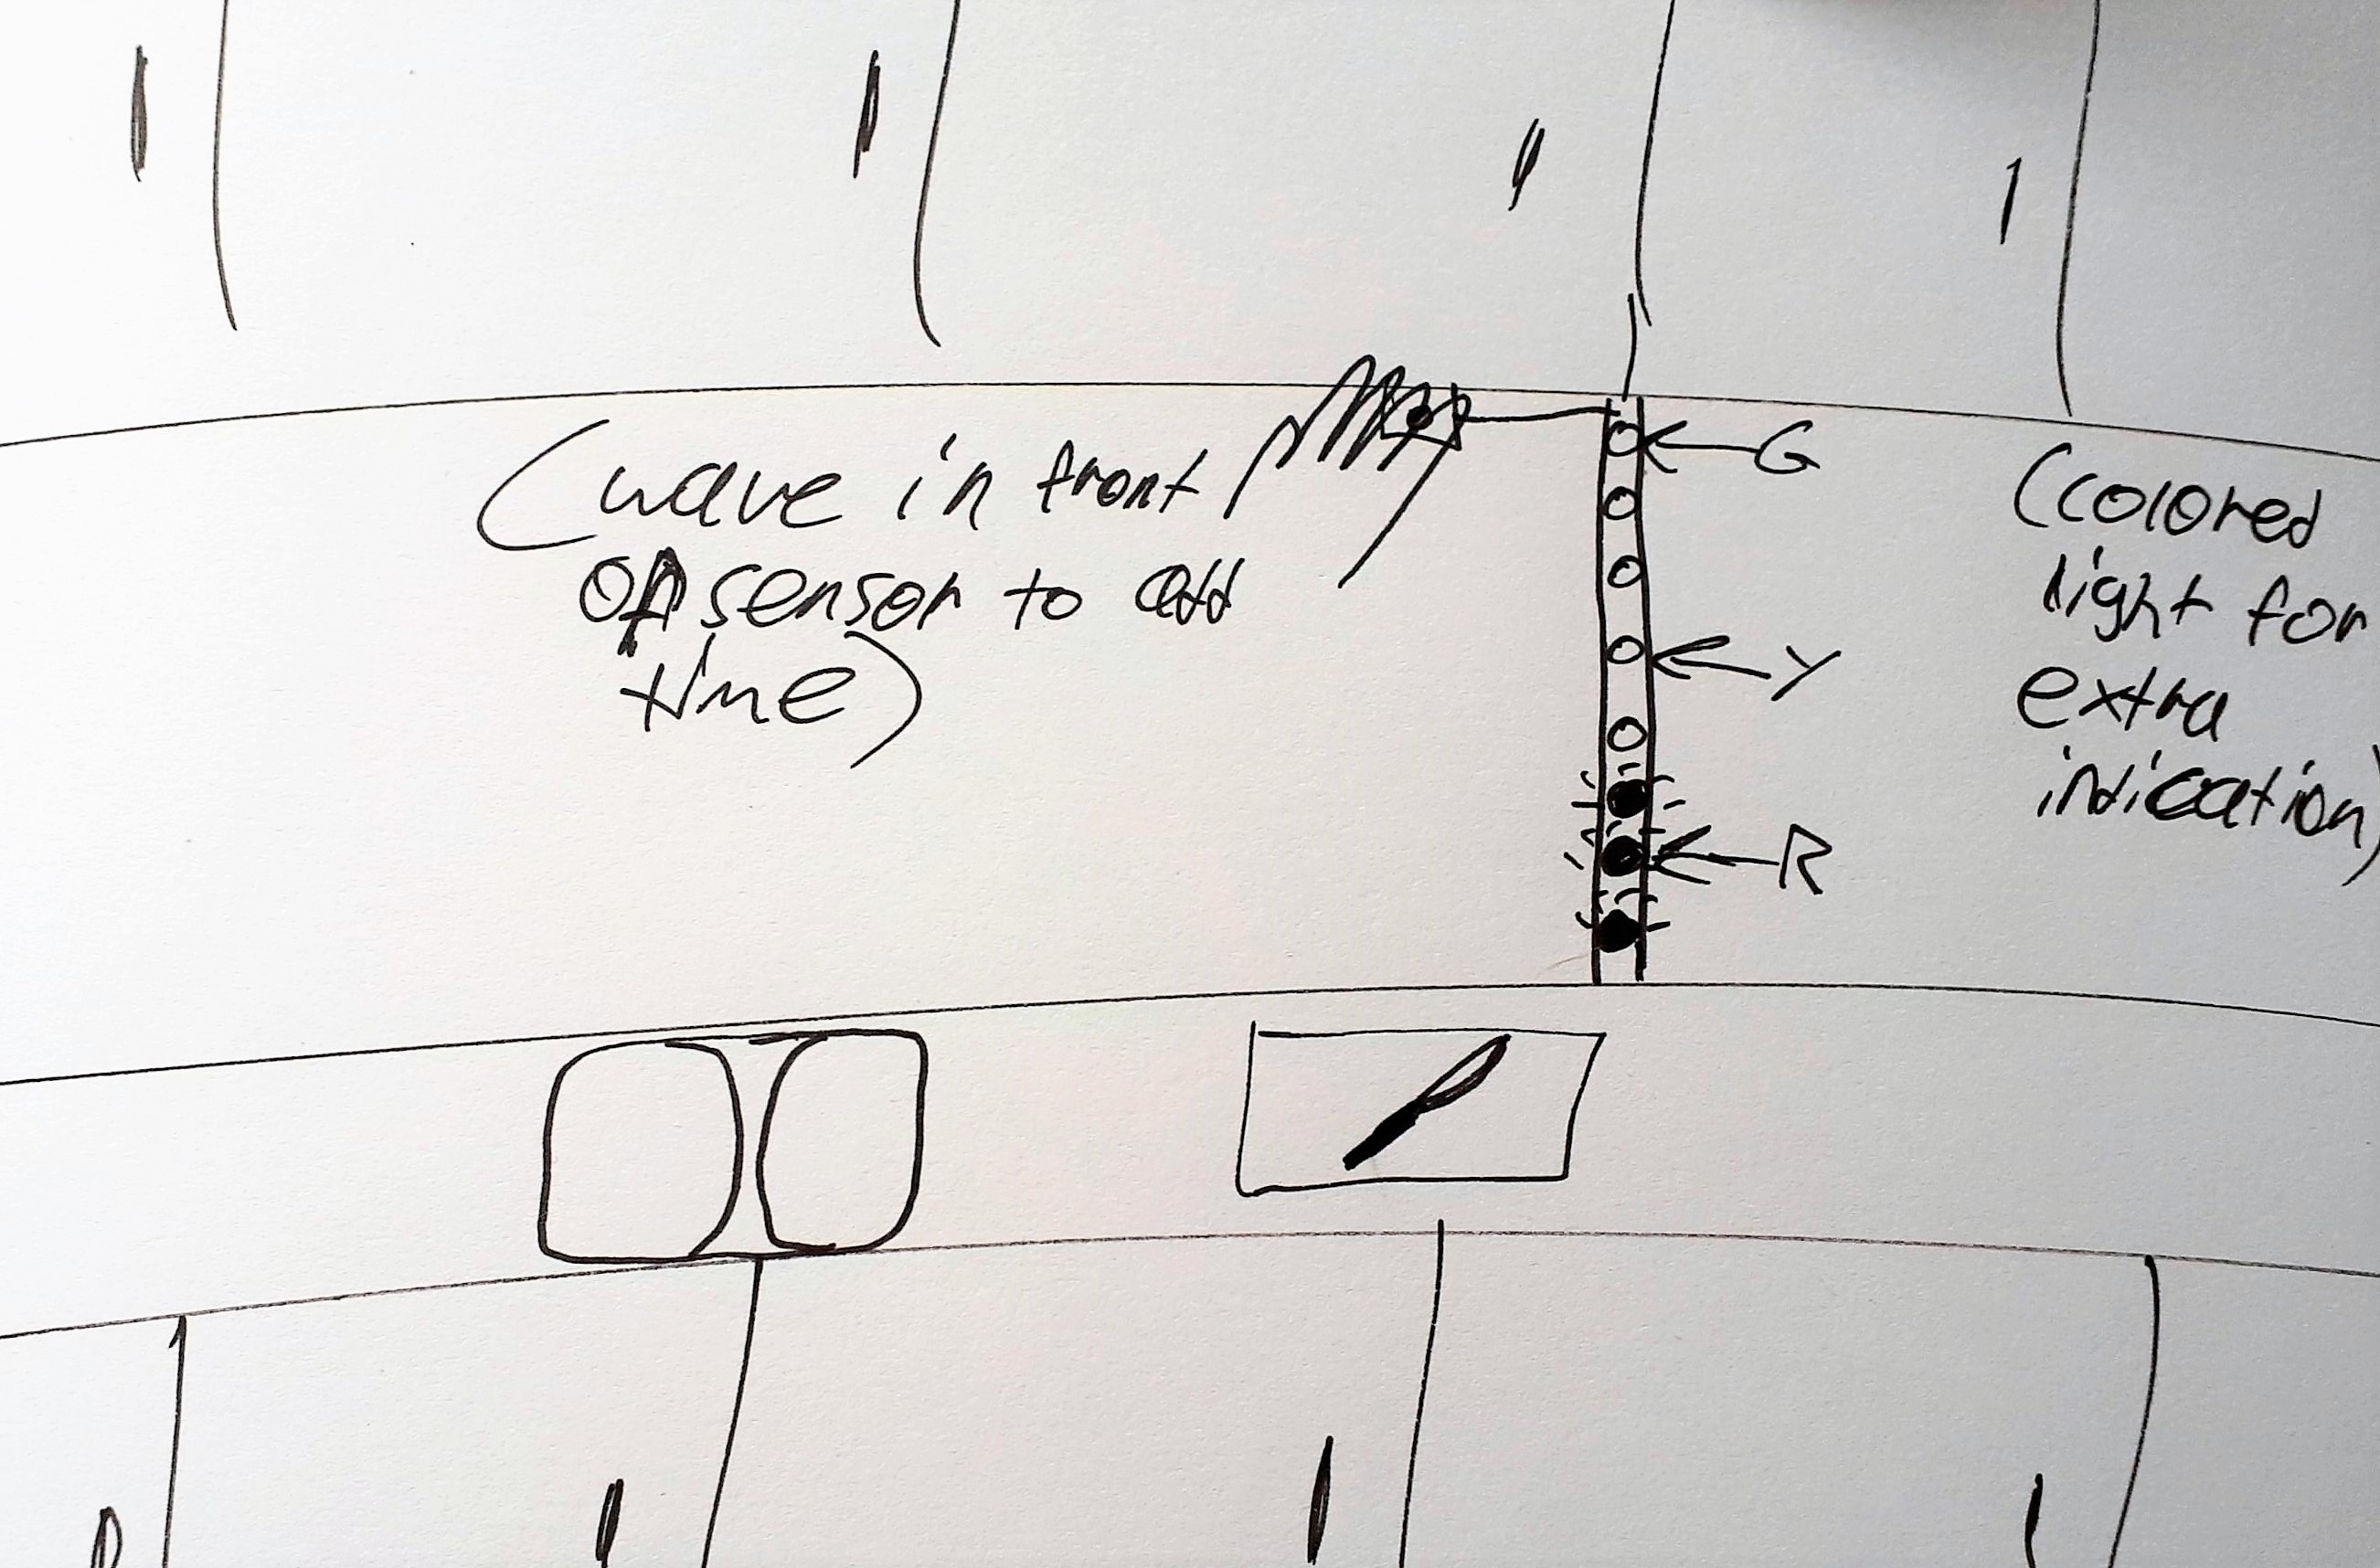 (wave in front
of sensor to add
time)
G
Y
R
(colored
light for
extra
indication)